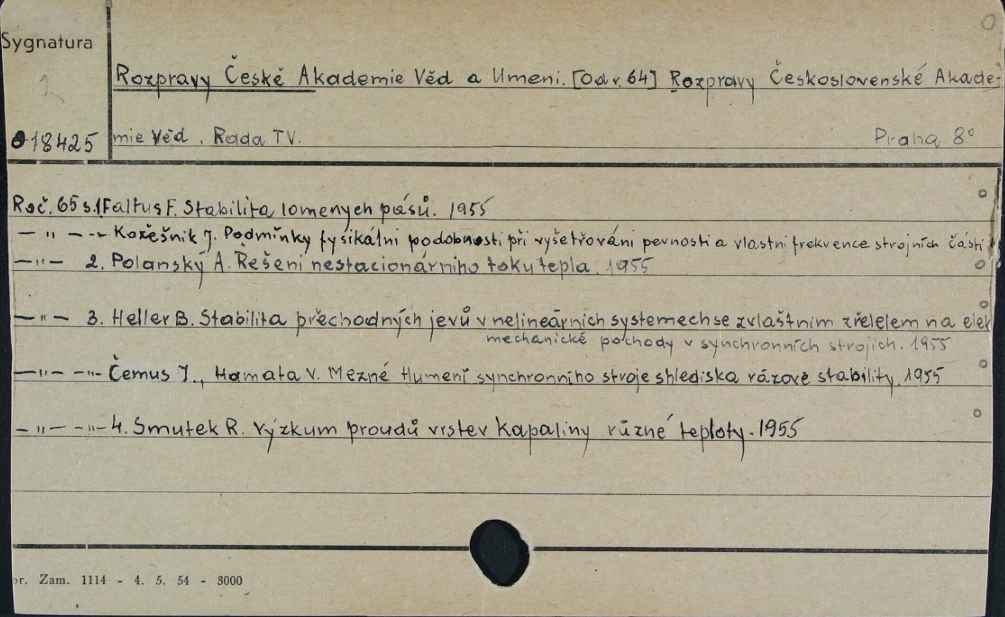 Sygnatura
Rozpravy České Akademie Věd a Umeni. [Od r. 64] Rozpravy Československé Akade-
018425 mie Věd. Rada TV. Praha 8°
Roč. 65 s.1 Faltus F. Stabilita lomenych pásů. 1955
— " — -"- Kožešnik J. Podmínky fysikálni podobnosti při vyšetřováni pevnosti a vlastni frekvence strojnich části
— " — 2. Polanský A. Řešeni nestacionárniho toku tepla. 1955
— " — 3. Heller B. Stabilita přechodných jevů v nelineárnich systemech se zvlaštnim zřelelem na elek
mechanické pochody v synchronnich strojich. 1955
— " — -"- Čemus J., Hamata V. Mezné tlumeni synchronniho stroje shlediska rázové stability. 1955
— " — -"- 4. Smutek R. Výzkum proudů vrstev kapaliny různé teploty. 1955
or. Zam. 1114 - 4. 5. 54 - 3000